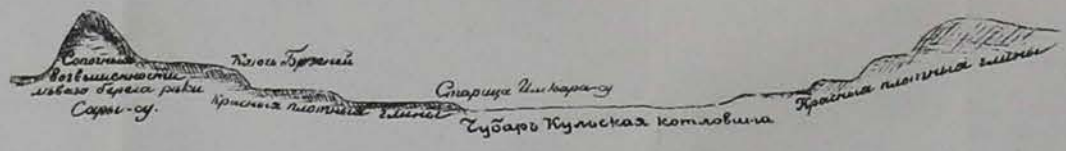 Сопочныя
возвышенности
лѣваго берега рѣки
Сары-су.
Ключь
Красныя плотныя глины
Старица
Чубаръ Кульская котловина
Красныя плотныя глины